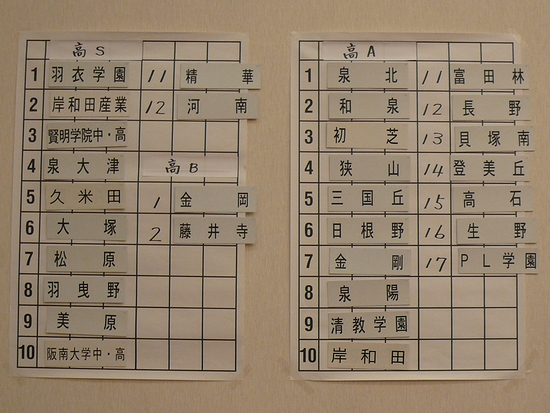 高S
1 羽衣学園 11 精華
2 岸和田産業 12 河南
3 賢明学院中・高
4 泉大津 高B
5 久米田 1 金岡
6 大塚 2 藤井寺
7 松原
8 羽曳野
9 美原
10 阪南大学中・高
高A
1 泉北 11 富田林
2 和泉 12 長野
3 初芝 13 貝塚南
4 狭山 14 登美丘
5 三国丘 15 高石
6 日根野 16 生野
7 金剛 17 PL学園
8 泉陽
9 清教学園
10 岸和田